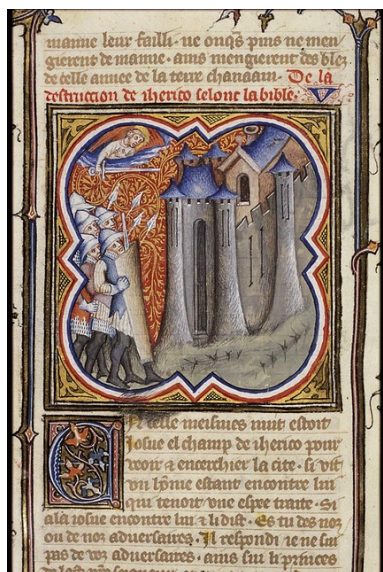 manne leur failli· ne onq̃s puis ne men
gierent de manne · ains mengierent des blez
de celle annee de la terre chanaam· De la
destruccion de iherico selonc la bible·
En celle meismes nuit estoit
iosue el champ de iherico pour
veoir ⁊ encerchier la cite· si vit
un hõme estant encontre lui
qui tenoit une espee traite· Si
ala iosue encontre lui ⁊ li dist· Es tu des noz
ou de noz adversaires· Il respondi ie ne sui
pas de voz adversaires· ains sui li princes